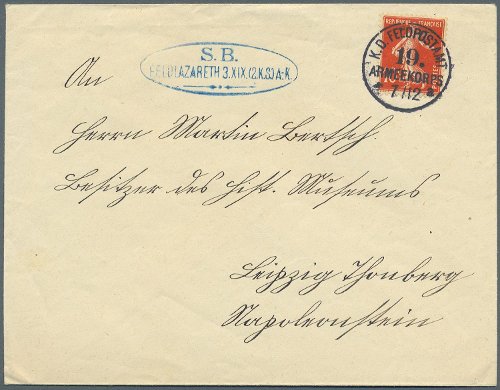 S.B.
FELDLAZARETH 3.XIX.(2.K.S.)A-K.
REPUBLIQUE FRANÇAISE
K.D. FELDPOSTAMT
19.
ARMEEKORPS
* 7/12 *
An
Herrn Martin Bertsch
Besitzer des hist. Museums
Leipzig Thonberg
Napoleonstein